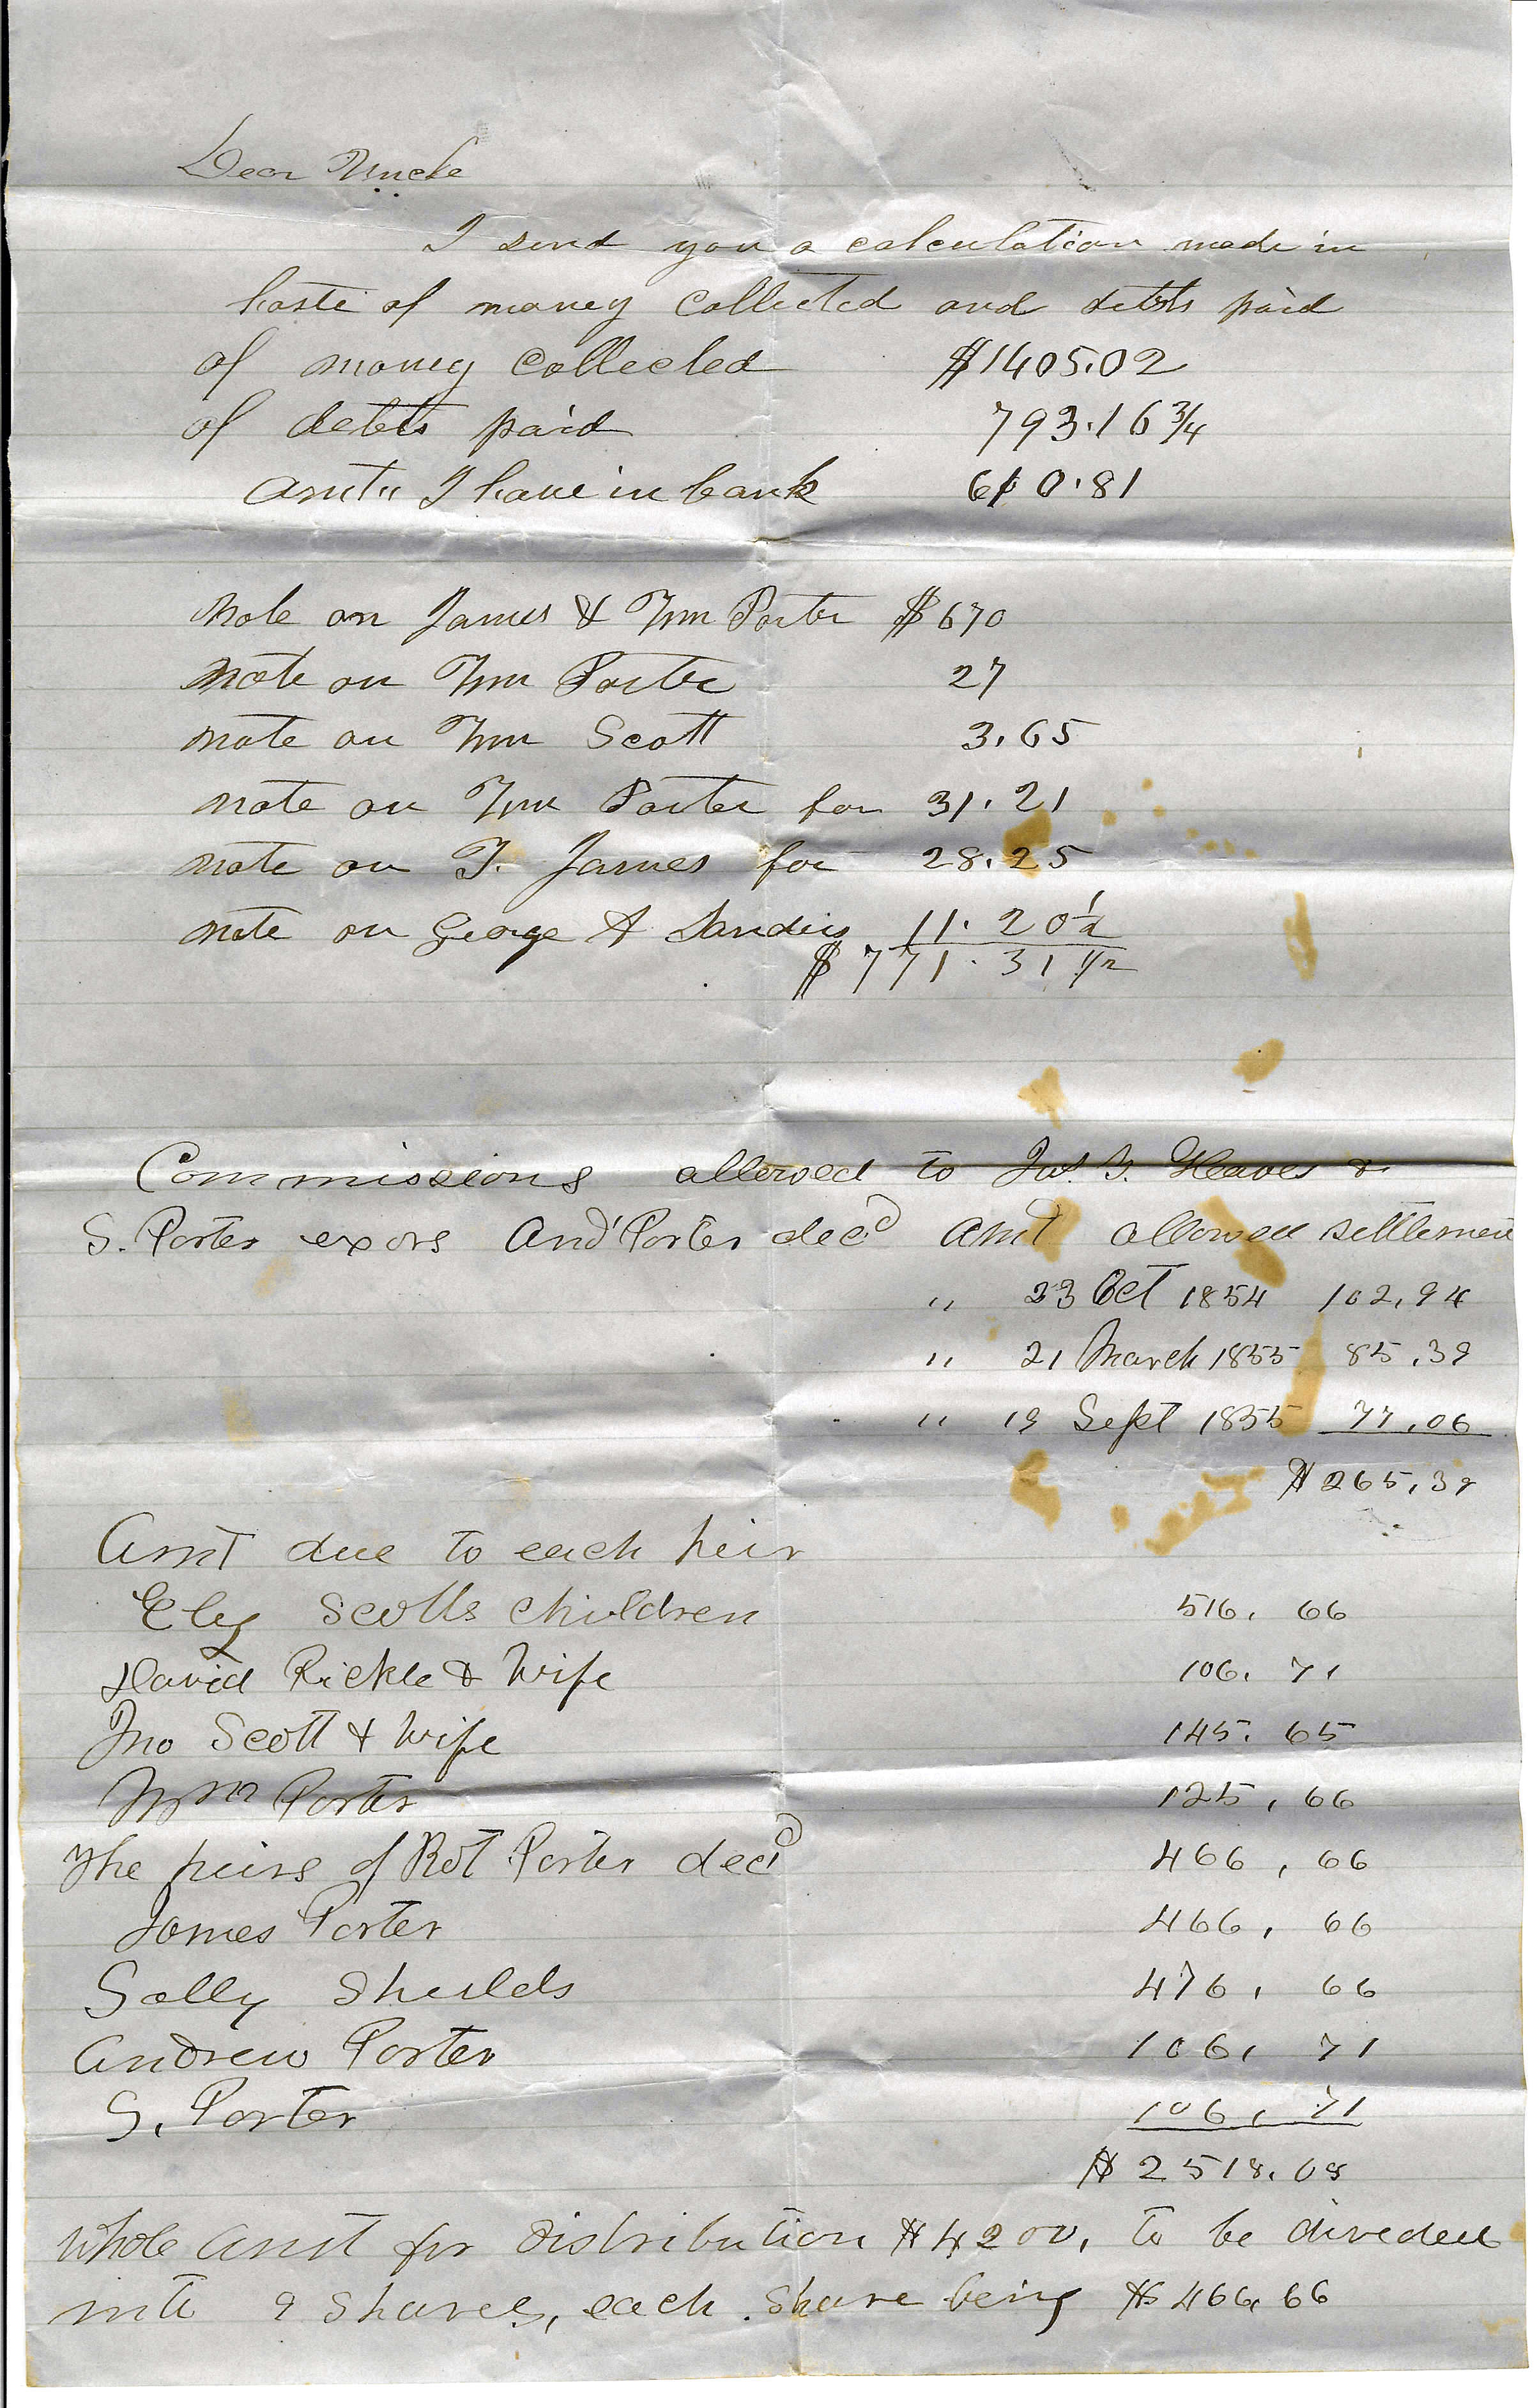 Dear Uncle
I send you a calculation made in
haste of money collected and debts paid
of money collected $1405.02
of debts paid 793.16 3/4
amt" I have in bank 610.81
note on James & Wm Porter $670
note on Wm Porter 27
note on Wm Scott 3.65
note on Wm Porter for 31.21
note on T. James for 28.25
note on George A Sanders 11.20 1/2
$771.31 1/2
Commissions allowed to Jas. T. Gleaves &
S. Porter exors And Porter decd Amt allowed settlement
" 23 Oct 1854 102,94
" 21 March 1855 85,39
" 19 Sept 1855 77,06
$265,39
Amt due to each heir
Ely Scotts children 516. 66
David Pickle & Wife 106. 71
Jno Scott & Wife 145. 65
Wm Porter 125, 66
The heirs of Robt Porter decd 466, 66
James Porter 466, 66
Sally Sheilds 476, 66
Andrew Porter 106, 71
S. Porter 106, 71
$2518.08
Whole amt for distribution $4200, to be divided
into 9 Shares, each Share being $466,66